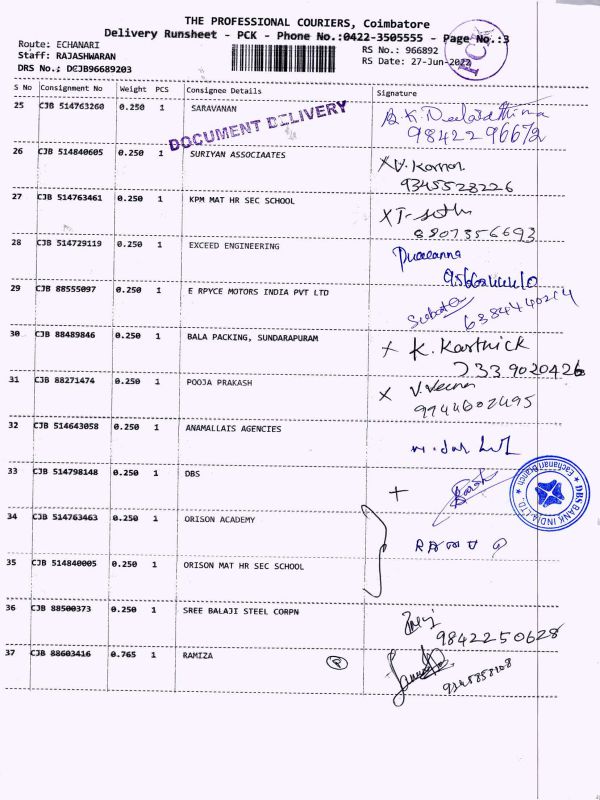 THE PROFESSIONAL COURIERS, Coimbatore
Delivery Runsheet - PCK - Phone No.:0422-3505555 - Page No.:3
Route: ECHANARI
Staff: RAJASHWARAN
DRS No.; DCJB96689203
RS No.: 966892
RS Date: 27-Jun-2022
S No Consignment No Weight PCS Consignee Details Signature
25 CJB 514763260 0.250 1 SARAVANAN
9842296672
DOCUMENT DELIVERY
26 CJB 514840605 0.250 1 SURIYAN ASSOCIAATES
9345528226
27 CJB 514763461 0.250 1 KPM MAT HR SEC SCHOOL
8807356693
28 CJB 514729119 0.250 1 EXCEED ENGINEERING
29 CJB 88555097 0.250 1 E RPYCE MOTORS INDIA PVT LTD
6384440214
30 CJB 88489846 0.250 1 BALA PACKING, SUNDARAPURAM X K. Karthick
7339020426
31 CJB 88271474 0.250 1 POOJA PRAKASH
9744602495
32 CJB 514643058 0.250 1 ANAMALLAIS AGENCIES
33 CJB 514798148 0.250 1 DBS
DBS BANK INDIA LTD
Eachanari Branch
34 CJB 514763463 0.250 1 ORISON ACADEMY
35 CJB 514840005 0.250 1 ORISON MAT HR SEC SCHOOL
36 CJB 88500373 0.250 1 SREE BALAJI STEEL CORPN
9842250628
37 CJB 88603416 0.765 1 RAMIZA